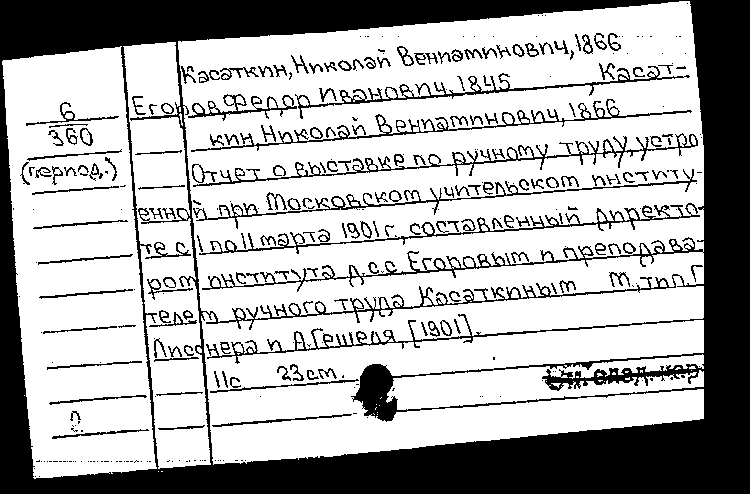 Касаткин, Николай Вениаминович, 1866
6
360
(период.)
Егоров, Федор Иванович, 1845 , Касат-
кин, Николай Вениаминович, 1866
Отчет о выставке по ручному труду, устро
енной при Московском учительском институ-
те с 1 по 11 марта 1901 г., составленный директо-
ром института д.с.с. Егоровым и преподава-
телем ручного труда Касаткиным М., тип. Г.
Лисснера и А. Гешеля, [1901].
11с 23 см.
См. след. кар